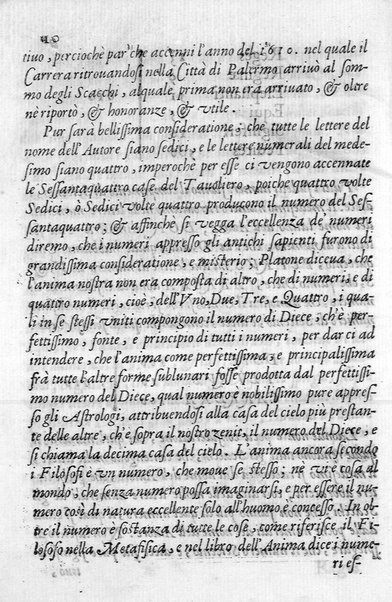 10
tiuo, percioche par'che accenni l'anno del 1610. nel quale il
Carrera ritrouandosi nella Città di Palermo arriuò al som-
mo degli Scacchi, al quale prima non era arriuato, & oltre
nè riportò, & honoranze, & vtile.
Pur sarà bellissima consideratione, che tutte le lettere del
nome dell'Autore siano sedici, e le lettere numerali del mede-
simo siano quattro, imperoche per esse ci vengono accennate
le Sessantaquattro case del Tauoliero, poiche quattro volte
Sedici, ò Sedici volte quattro producono il numero del Ses-
santaquattro; & affinche si vegga l'eccellenza de' numeri
diremo, che i numeri appresso gli antichi sapienti furono di
grandissima consideratione, e misterio; Platone diceua, che
l'anima nostra non era composta di altro, che di numeri, e di
quattro numeri, cioè, dell'Vno, Due, Tre, e Quattro, i qua-
li in se stessi vniti compongono il numero di Diece, ch'è per-
fettissimo, fonte, e principio di tutti i numeri, per darci ad
intendere, che l'anima come perfettissima, e principalissima
frà tutte l'altre forme sublunari fosse prodotta dal perfettissi-
mo numero del Diece, qual numero è nobilissimo pure apres-
so gli Astrologi, attribuendosi alla casa del cielo più prestan-
te delle altre, ch'è sopra il nostro zenit, il numero del Diece, e
si chiama la decima casa del cielo. L'anima ancora secondo
i Filosofi è vn numero, che moue se stesso; nè vi è cosa al
mondo, che senza numero possa imaginarsi, e per essere il nu-
mero così di natura eccellente solo all'huomo è concesso. In ol-
tre il numero è sostanza di tutte le cose, come riferisce il Fi-
losofo nella Metafisica, e nel libro dell'Anima dice i nume-
ri es-